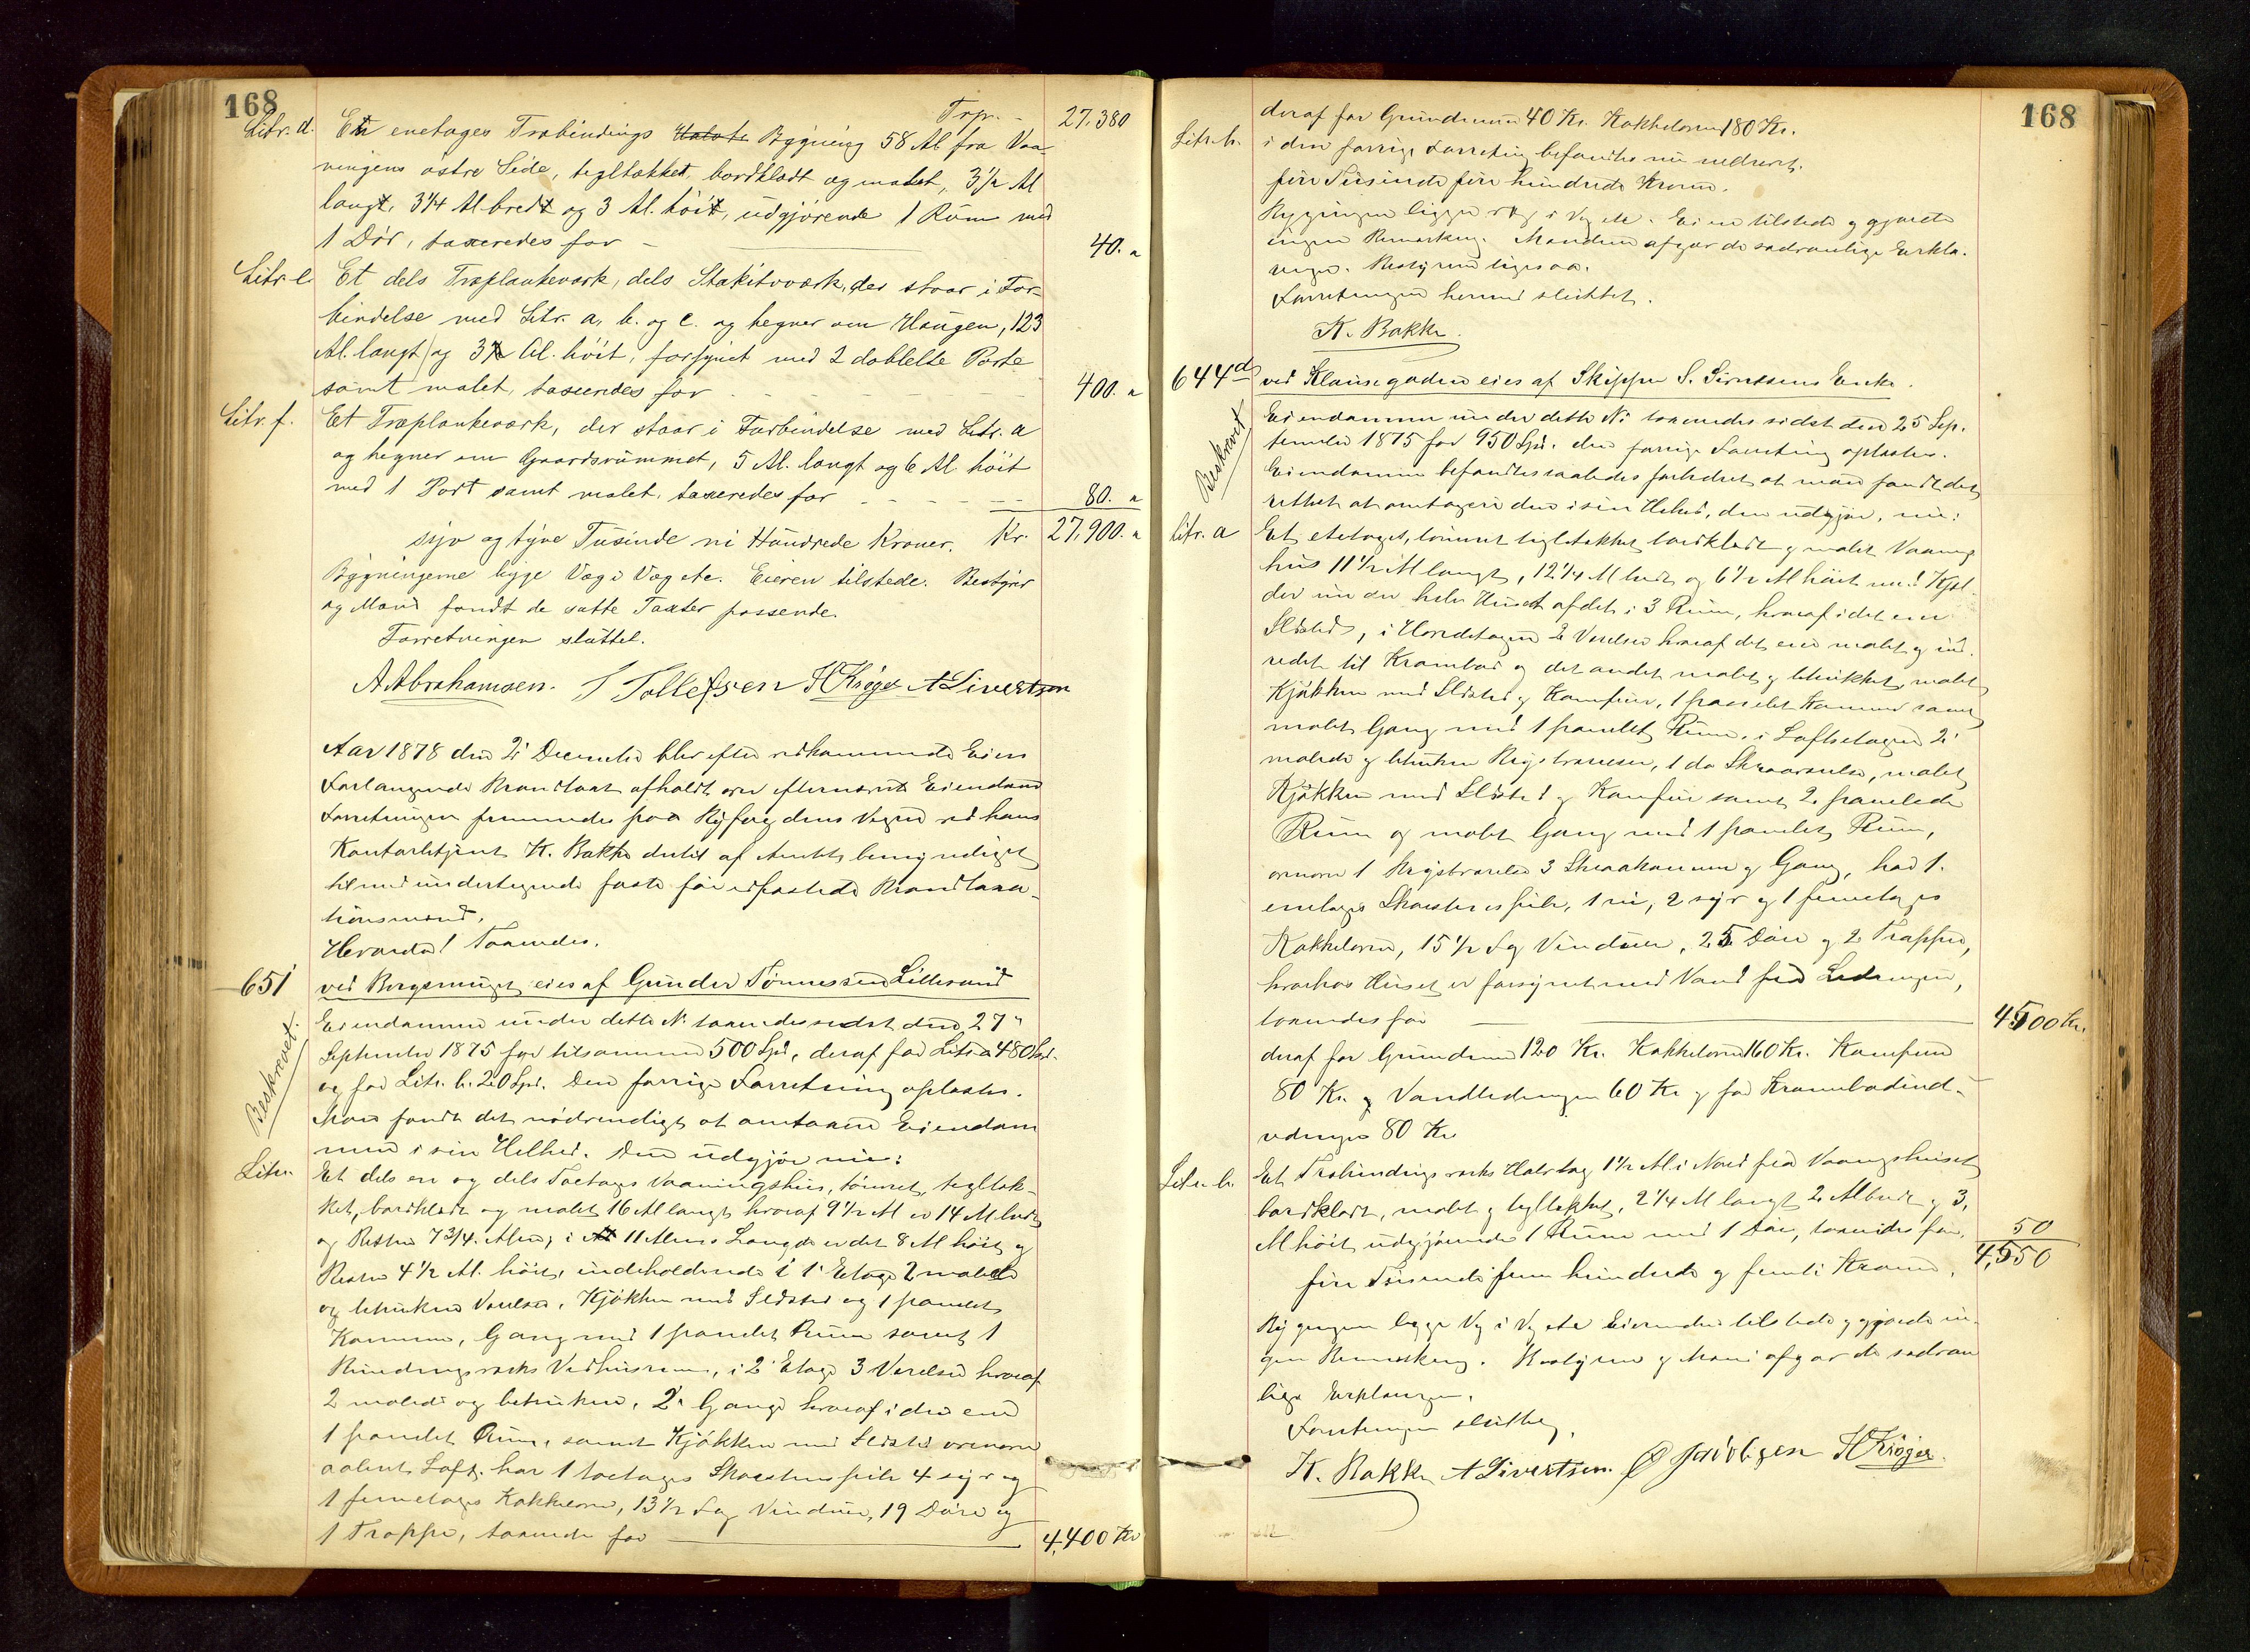 168
Trp. - 27,380
Litr. d. En enetages Træbindings Halvta Bygning 58 Al. fra Vaa-
ningens østre Side, tegltækket, bordklædt og malet, 3 1/2 Al
langt, 3 1/4 Al. bredt og 3 Al. høit, udgjørende 1 Rum med
1 Dør, taxeredes for - 40. "
Litr. e Et dels Træplankeværk, dels Stakitværk, der staar i For-
bindelse med Litr. a, b. og c. og hegner om Haugen, 123
Al. langt og 3 Al. høit, forsynet med 2 dobbelte Porte
samt malet, taxeredes for - - - - - 400. "
Litr. f. Et Træplankeværk, der staar i Forbindelse med Litr. a
og hegner om Gaardsrummet, 5 Al. langt og 6 Al. høit
med 1 Port samt malet, taxeredes for - - - - - 80. "
syv og tyve Tusinde ni Hundrede Kroner. Kr. 27,900. "
Bygningerne ligge Væg i Væg etc. Eieren tilstede. Bestyrer
og Mænd fandt de satte Taxter passende.
Forretningen sluttet.
A Abrahamsen. T Tollefsen H Krøger A Sivertsen
Aar 1878 den 2' December blev efter vedkommende Eiers
Forlangende Brandtaxt afholdt over efternævnte Eiendom
Forretningen fremmedes paa Byfogdens Vegne ved hans
Kontorbetjent K. Bakke dertil af Amtet bemyndiget
tilmed undertegnede faste for edfæstede Brandtaxa-
tionsmænd.
Hvorda! Taxeredes.
651 ved Bergsmuget eies af Gunder Tønnessen Lillesand
Beskrevet.
Eiendommen under dette No. taxeredes sidst den 27"
September 1875 for tilsammen 500 Spd, deraf for Litr a 480 Spd.
og for Litr. b. 20 Spd. Den forrige Forretning oplæstes.
Man fandt det nødvendigt at omtaxere Eiendom
men i sin Helhed. Den udgjør nu:
Litr. Et dels en og dels Toetages Vaaningshus, tømret, tegltæk-
ket, bordklædt og malet 16 Al langt hvoraf 9 1/2 Al er 14 Al bredt
og Resten 7 3/4. Alen; i 11 Alens Længde er det 8 Al høit og
Resten 4 1/2 Al. høit, indeholdende i 1' Etage 2 malede
og betrukne Værelser, Kjøkken med Ildsted og 1 panelet
Kammer, Gang med 1 panelet Rum samt 1
Bindingsværks Vedhusrum, i 2' Etage 3 Værelser hvoraf
2 malede og betrukne, 2 Gange hvoraf i den ene
1 panelet Rum, samt Kjøkken med Ildsted ovenover
aabent Loft. har 1 toetages Skorstenspibe 4 syv og
1 femetages Kakkelovne, 13 1/2 Fag Vinduer, 19 Døre og
1 Trappe, taxeredes for 4,400 Kr
168
deraf for Grundmuren 40 Kr. Kakkelovne 180 Kr.
Litr. b. i den forrige Forretning befandtes nu nedrevet.
fire Tusinde fire hundrede Kroner.
Bygningen ligger Væg i Væg etc. Eieren tilstede og gjorde
ingen Bemærkning. Mændene afgav de sædvanlige Erklæ-
ringer. Bestyreren ligesaa.
Forretningen hermed sluttet.
K. Bakke.
644 d ved Klausegaden eies af Skipper S. Sirnessens Enke.
Beskrevet
Eiendommen under dette No taxeredes sidst den 25 Sep-
tember 1875 for 950 Spd. den forrige Forretning oplæstes.
Eiendommen befandtes saaledes forbedret at man fandt det
rettest at omtaxere den i sin Helhed, den udgjør, nu:
Litr. a Et etetages, tømret tegltækket bordklædt og malet Vaanings
hus 11 1/2 Al langt, 12 1/4 Al bredt og 6 1/2 Al høit med Kjel-
der under hele Huset afdelt i 3 Rum, hvoraf i det ene
Ildsted, i Hovedetagen 2 Værelser hvoraf det ene malet og ind-
redet til Krambod og det andet malet og betrukket, malet
Kjøkken med Ildsted og Komfur, 1 panelet Kammer samt
malet Gang med 1 panelet Rum. i Loftsetagen 2
malede og betrukne Kvistværelser, 1 do Skraaværelse, malet
Kjøkken med Ildsted og Komfur samt 2 panelede
Rum og malet Gang med 1 panelet Rum,
ovenover 1 Kvistværelse 3 Skraakammere og Gang, had 1.
enetages Skorstenspibe, 1 ni, 2 syv og 1 femetages
Kakkelovne, 15 1/2 Fag Vinduer, 25 Døre og 2 Trapper,
hvorhos Huset er forsynet med Vand fra Ledningen,
taxeredes for 4500 Kr.
deraf for Grundmuren 120 Kr. Kakkelovne 160 Kr. Komfurer
80 Kr. og Vandledningen 60 Kr og for Krambodind-
redningen 80 Kr
Litr. b. Et Træbindingsværks Halvtag 1 1/2 Al. i Nord fra Vaaningshuset
bordklædt, malet og tegltækket, 2 1/4 Al langt 2 Al bredt og 3,
Al høit udgjørende 1 Rum med 1 Dør, taxeredes for. 50
fire Tusinde fem hundrede og femti Kroner, 4,550
Bygningen ligger Væg i Væg etc Eierinden tilstede og gjorde in-
gen Bemærkning. Bestyrer og Mænd afgav de sædvan
lige Erklæringer.
Forretningen sluttet.
K. Bakke A Sivertsen. H Krøger.